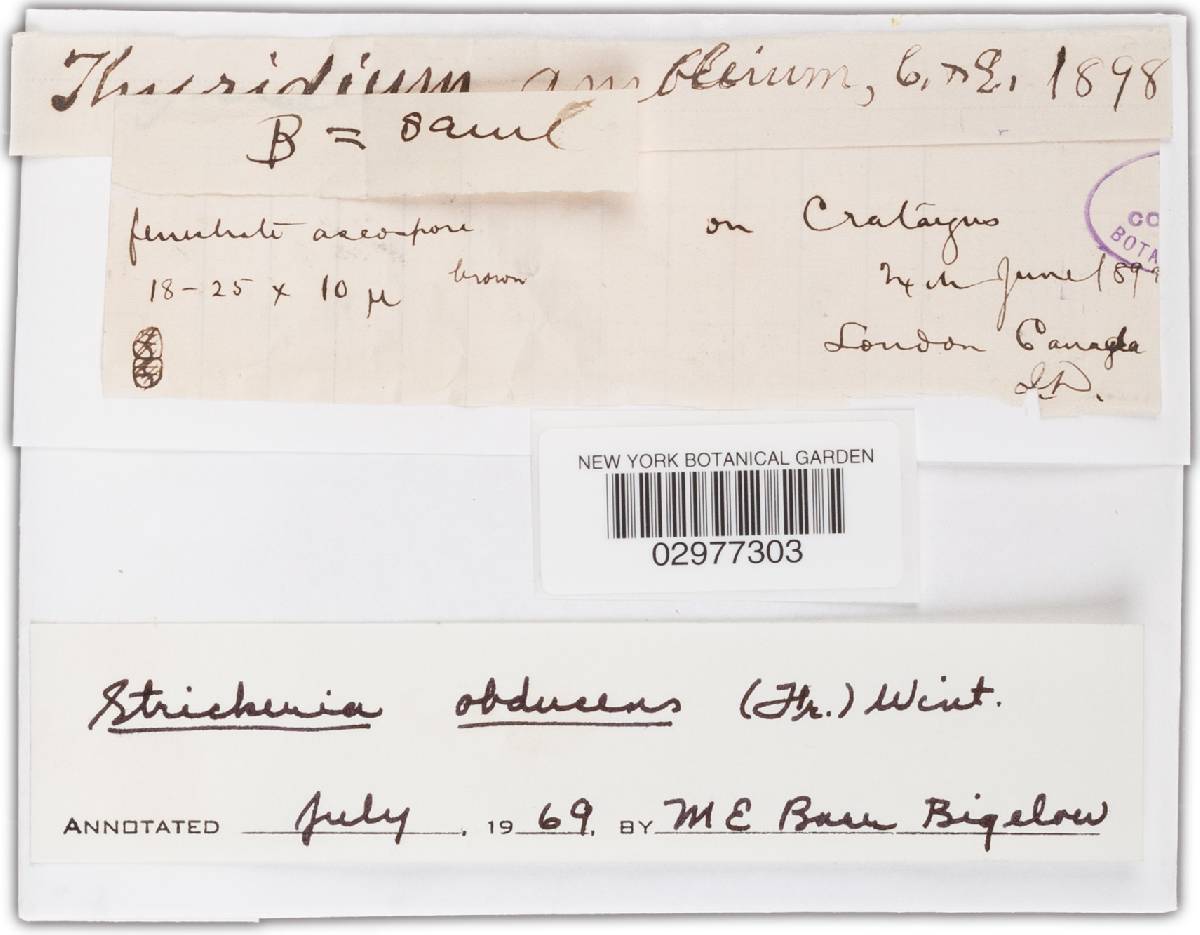 Thyridium C. & E. 1898
B =
fenestrate ascospore
18-25 x 10 μ brown
on Crataegus
June 189
London Canada
J.D.
CO
BOTA
NEW YORK BOTANICAL GARDEN
02977303
Strickeria obducens (Fr.) Wint.
ANNOTATED July, 1969, BY M E Barr Bigelow